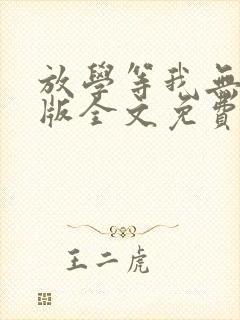 放學等我無
版全文免費
王二虎